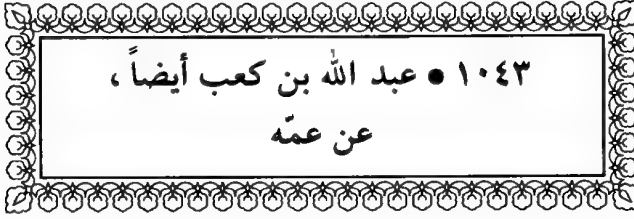 ١٠٤٣ ● عبد الله بن كعب أيضاً ،
عن عمّه